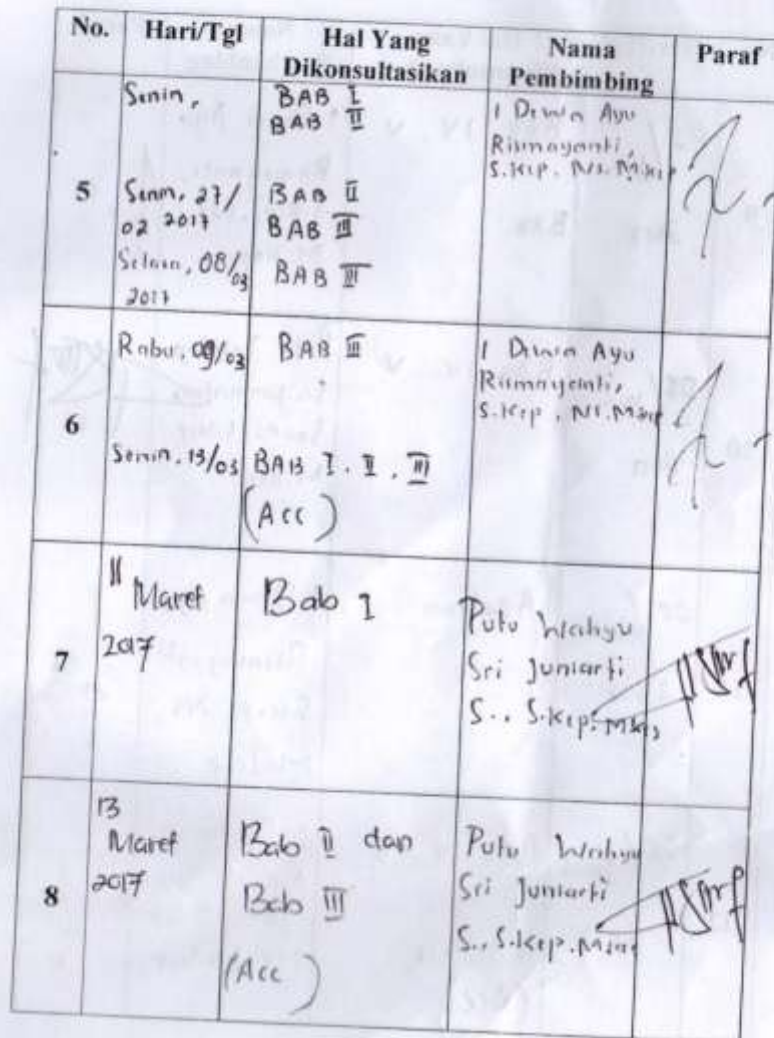 No. Hari/Tgl Hal Yang Dikonsultasikan Nama Pembimbing Paraf
5
Senin,
BAB I
BAB II
Senin, 27/
02 2017
BAB II
BAB III
Selasa, 08/03
2017
BAB III
I Dewa Ayu
Rismayanti,
S.Kep. Ns. M.Kep
6
Rabu, 09/03
BAB III
Senin, 13/03
BAB I. II. III
(Acc)
I Dewa Ayu
Rismayanti,
S.Kep. Ns. M.Kep
7
11 Maret
2017
Bab I
Putu Wahyu
Sri Juniarti
S., S.Kep. M.Kes
8
13
Maret
2017
Bab II dan
Bab III
(Acc)
Putu Wahyu
Sri Juniarti
S., S.Kep.